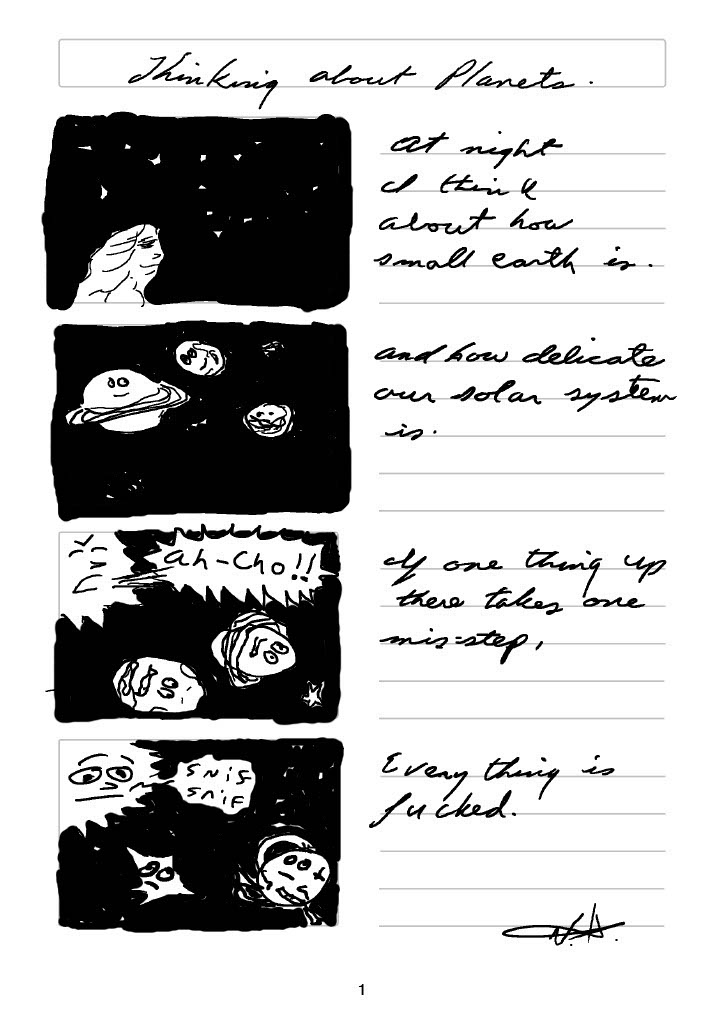 Thinking about Planets.
At night
I think
about how
small earth is.
and how delicate
our solar system
is.
ah-cho!!
If one thing up
there takes one
mis-step,
snif
snif
Every thing is
fucked.
N.A.
1